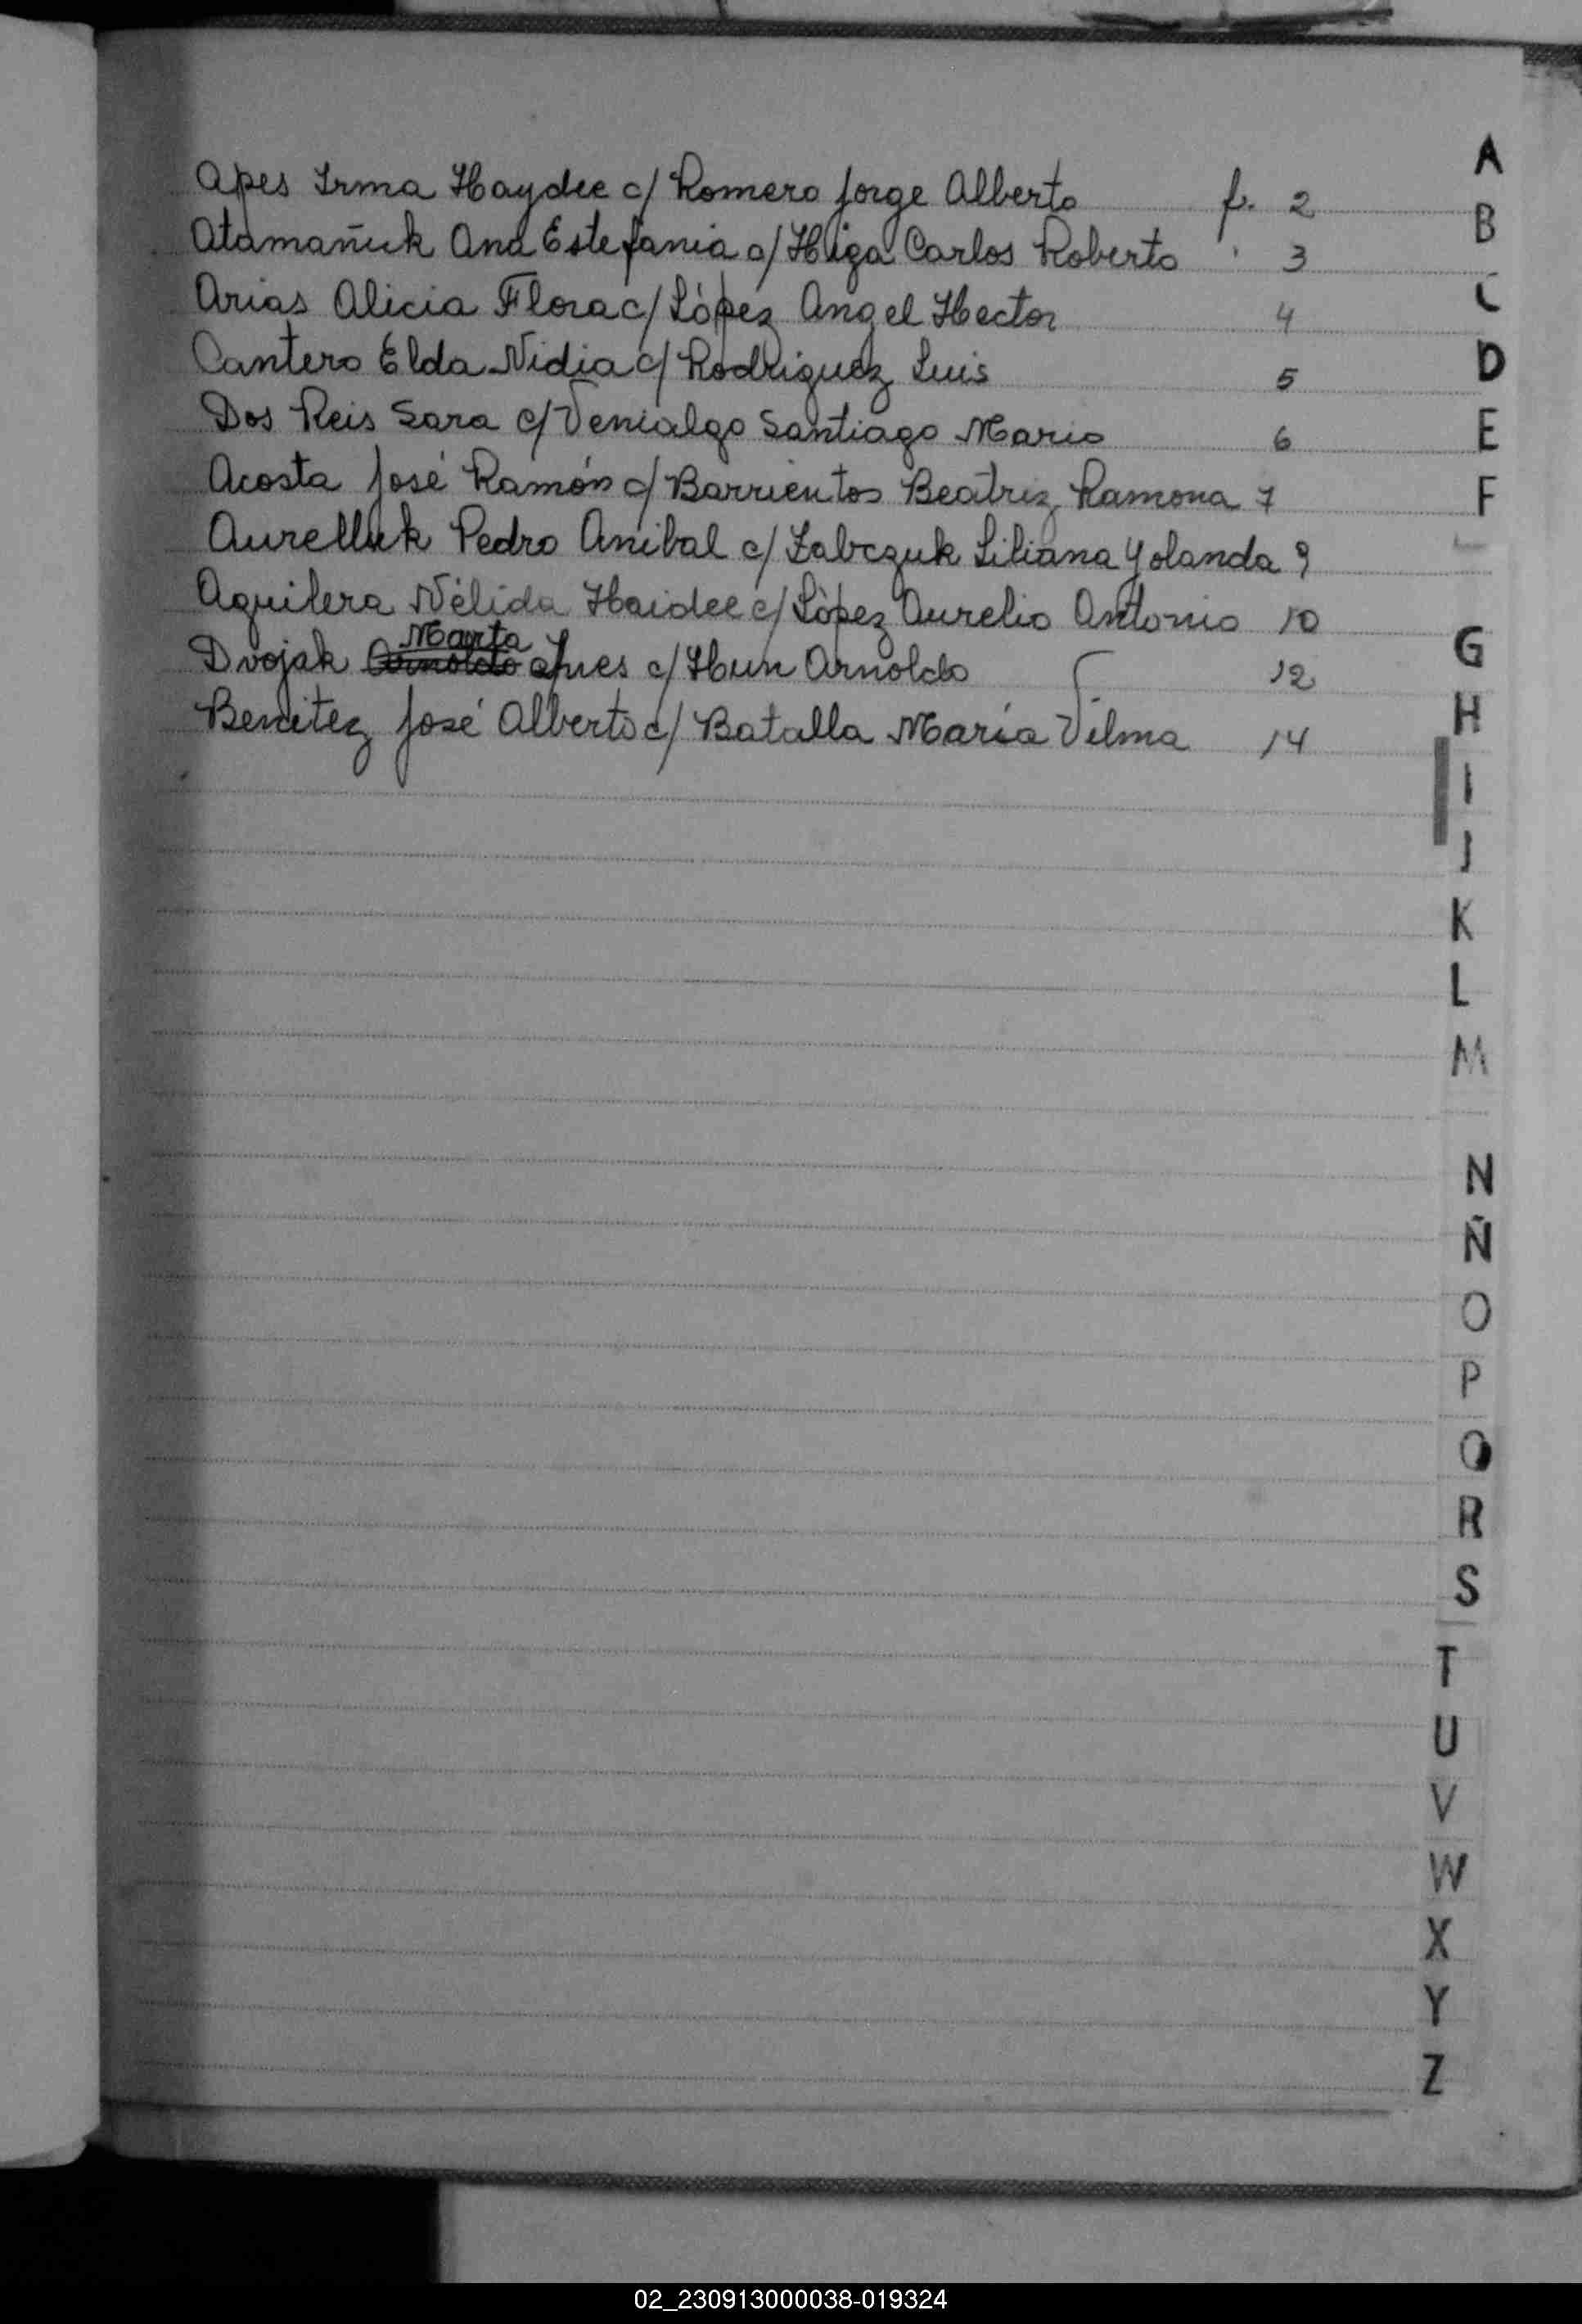 Apes Irma Haydee c/ Romero Jorge Alberto f. 2
Atamañuk Ana Estefania c/ Higa Carlos Roberto " 3
Arias Alicia Flora c/ López Angel Hector 4
Cantero Elda Nidia c/ Rodriguez Luis 5
Dos Reis Sara c/ Venialgo Santiago Mario 6
Acosta José Ramón c/ Barrientos Beatriz Ramona 7
Aurelluk Pedro Anibal c/ Zabczuk Liliana Yolanda 9
Aguilera Nélida Haidee c/ López Aurelio Antonio 10
Marta
Dvojak Arnoldo Ines c/ Hun Arnoldo 12
Benitez José Alberto c/ Batalla María Vilma 14
A
B
C
D
E
F
G
H
I
J
K
L
M
N
Ñ
O
P
Q
R
S
T
U
V
W
X
Y
Z
02_230913000038-019324